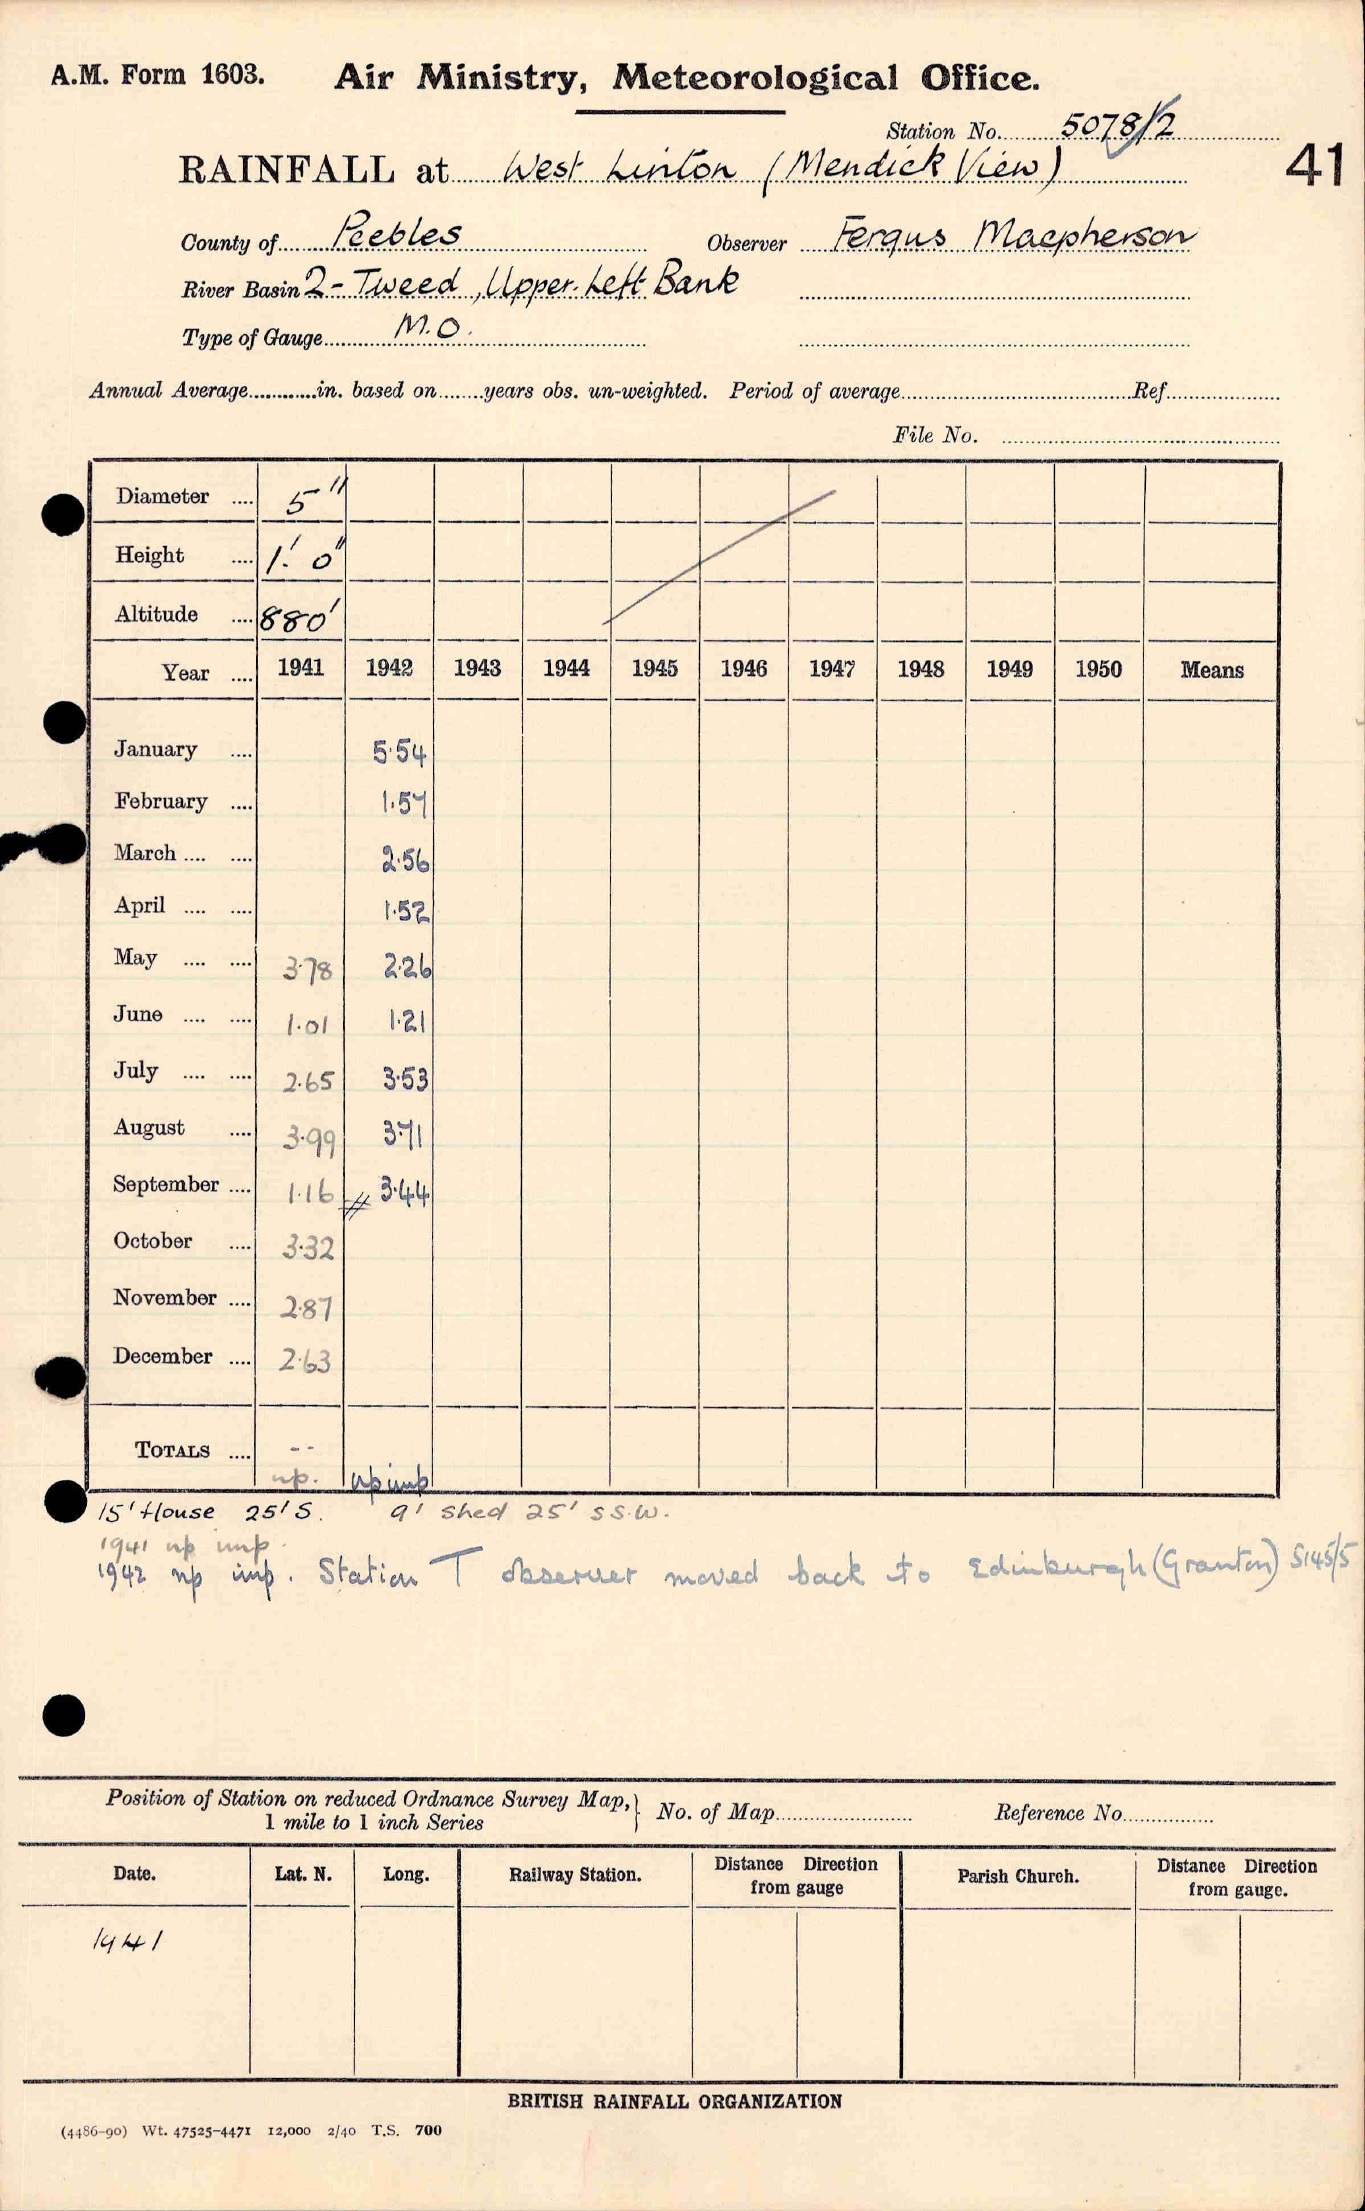 A.M. Form 1603. Air Ministry, Meteorological Office.
Station No. 5078/2
RAINFALL at West Linton (Mendick View)
41
County of Peebles Observer Fergus Macpherson
River Basin 2 - Tweed, Upper Left Bank
Type of Gauge M.O.
Annual Average............in. based on........years obs. un-weighted. Period of average........Ref........
File No.
Diameter .... 5"
Height .... 1' 0"
Altitude .... 880'
Year .... 1941 1942 1943 1944 1945 1946 1947 1948 1949 1950 Means
January .... 5.54
February .... 1.57
March .... .... 2.56
April .... .... 1.52
May .... .... 3.78 2.26
June .... .... 1.01 1.21
July .... .... 2.65 3.53
August .... 3.99 3.71
September .... 1.16 3.44
October .... 3.32
November .... 2.87
December .... 2.63
TOTALS .... --
np. np imp
15' House 25' S. 9' Shed 25' SS.W.
1941 np imp.
1942 np imp. Station T observer moved back to Edinburgh (Granton) 5145/5
Position of Station on reduced Ordnance Survey Map, } No. of Map........ Reference No........
1 mile to 1 inch Series
Date. Lat. N. Long. Railway Station. Distance Direction from gauge Parish Church. Distance Direction from gauge.
1941
BRITISH RAINFALL ORGANIZATION
(4486-90) Wt. 47525-4471 12,000 2/40 T.S. 700